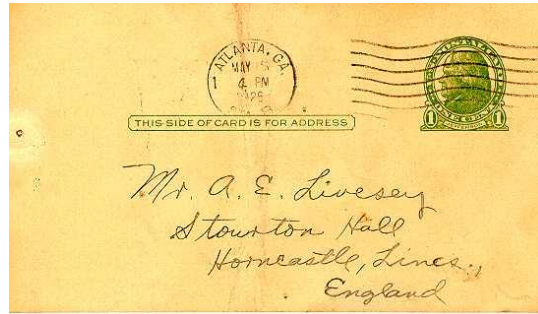 ATLANTA, GA.
MAY
1 4 PM
1926
THIS SIDE OF CARD IS FOR ADDRESS
1 1
Mr. A. E. Livesey
Stourton Hall
Horncastle, Lincs.,
England